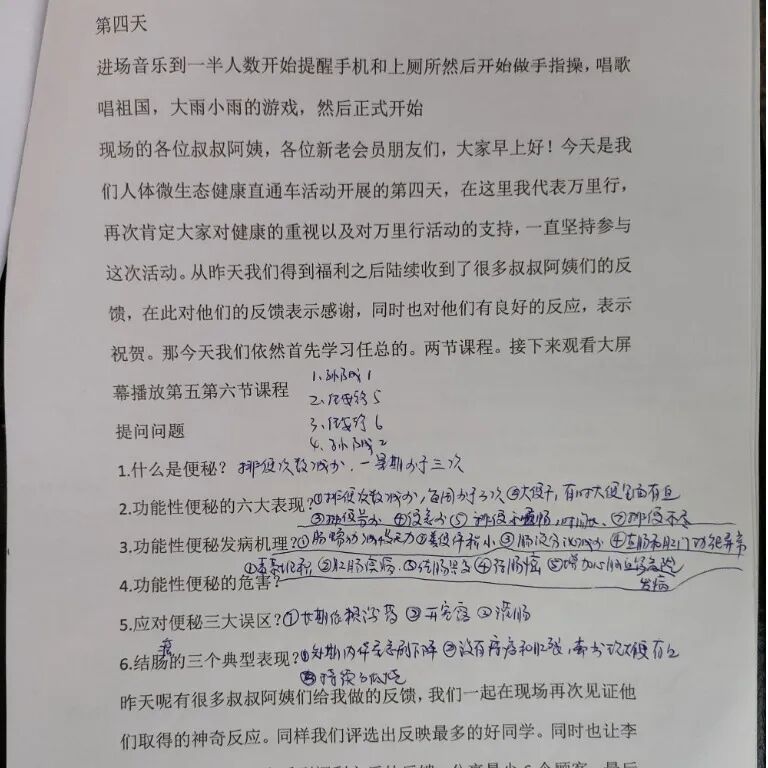 第四天
进场音乐到一半人数开始提醒手机和上厕所然后开始做手指操，唱歌
唱祖国，大雨小雨的游戏，然后正式开始
现场的各位叔叔阿姨，各位新老会员朋友们，大家早上好！今天是我
们人体微生态健康直通车活动开展的第四天，在这里我代表万里行，
再次肯定大家对健康的重视以及对万里行活动的支持，一直坚持参与
这次活动。从昨天我们得到福利之后陆续收到了很多叔叔阿姨们的反
馈，在此对他们的反馈表示感谢，同时也对他们有良好的反应，表示
祝贺。那今天我们依然首先学习任总的。两节课程。接下来观看大屏
幕播放第五第六节课程
1. 1
2. 5
3. 6
4. 2
提问问题
1.什么是便秘？排便次数减少，一星期少于三次
2.功能性便秘的六大表现？①排便次数减少，每周少于3次②大便干，有时大便
③排便 ④便意少⑤排便不畅
3.功能性便秘发病机理？①肠蠕动 ②粪便体积小③肠液分泌减少④直肠和肛门功能异常
①毒素 ②肛肠疾病 ④结肠癌⑤增加心脑血管
发病
4.功能性便秘的危害？
5.应对便秘三大误区？①长期依赖泻药②开塞露③灌肠
6.结肠癌的三个典型表现？①短期内体重急剧下降②没有痔疮和肛裂，大便
③持续
昨天呢有很多叔叔阿姨们给我做的反馈，我们一起在现场再次见证他
们取得的神奇反应。同样我们评选出反映最多的好同学。同时也让李